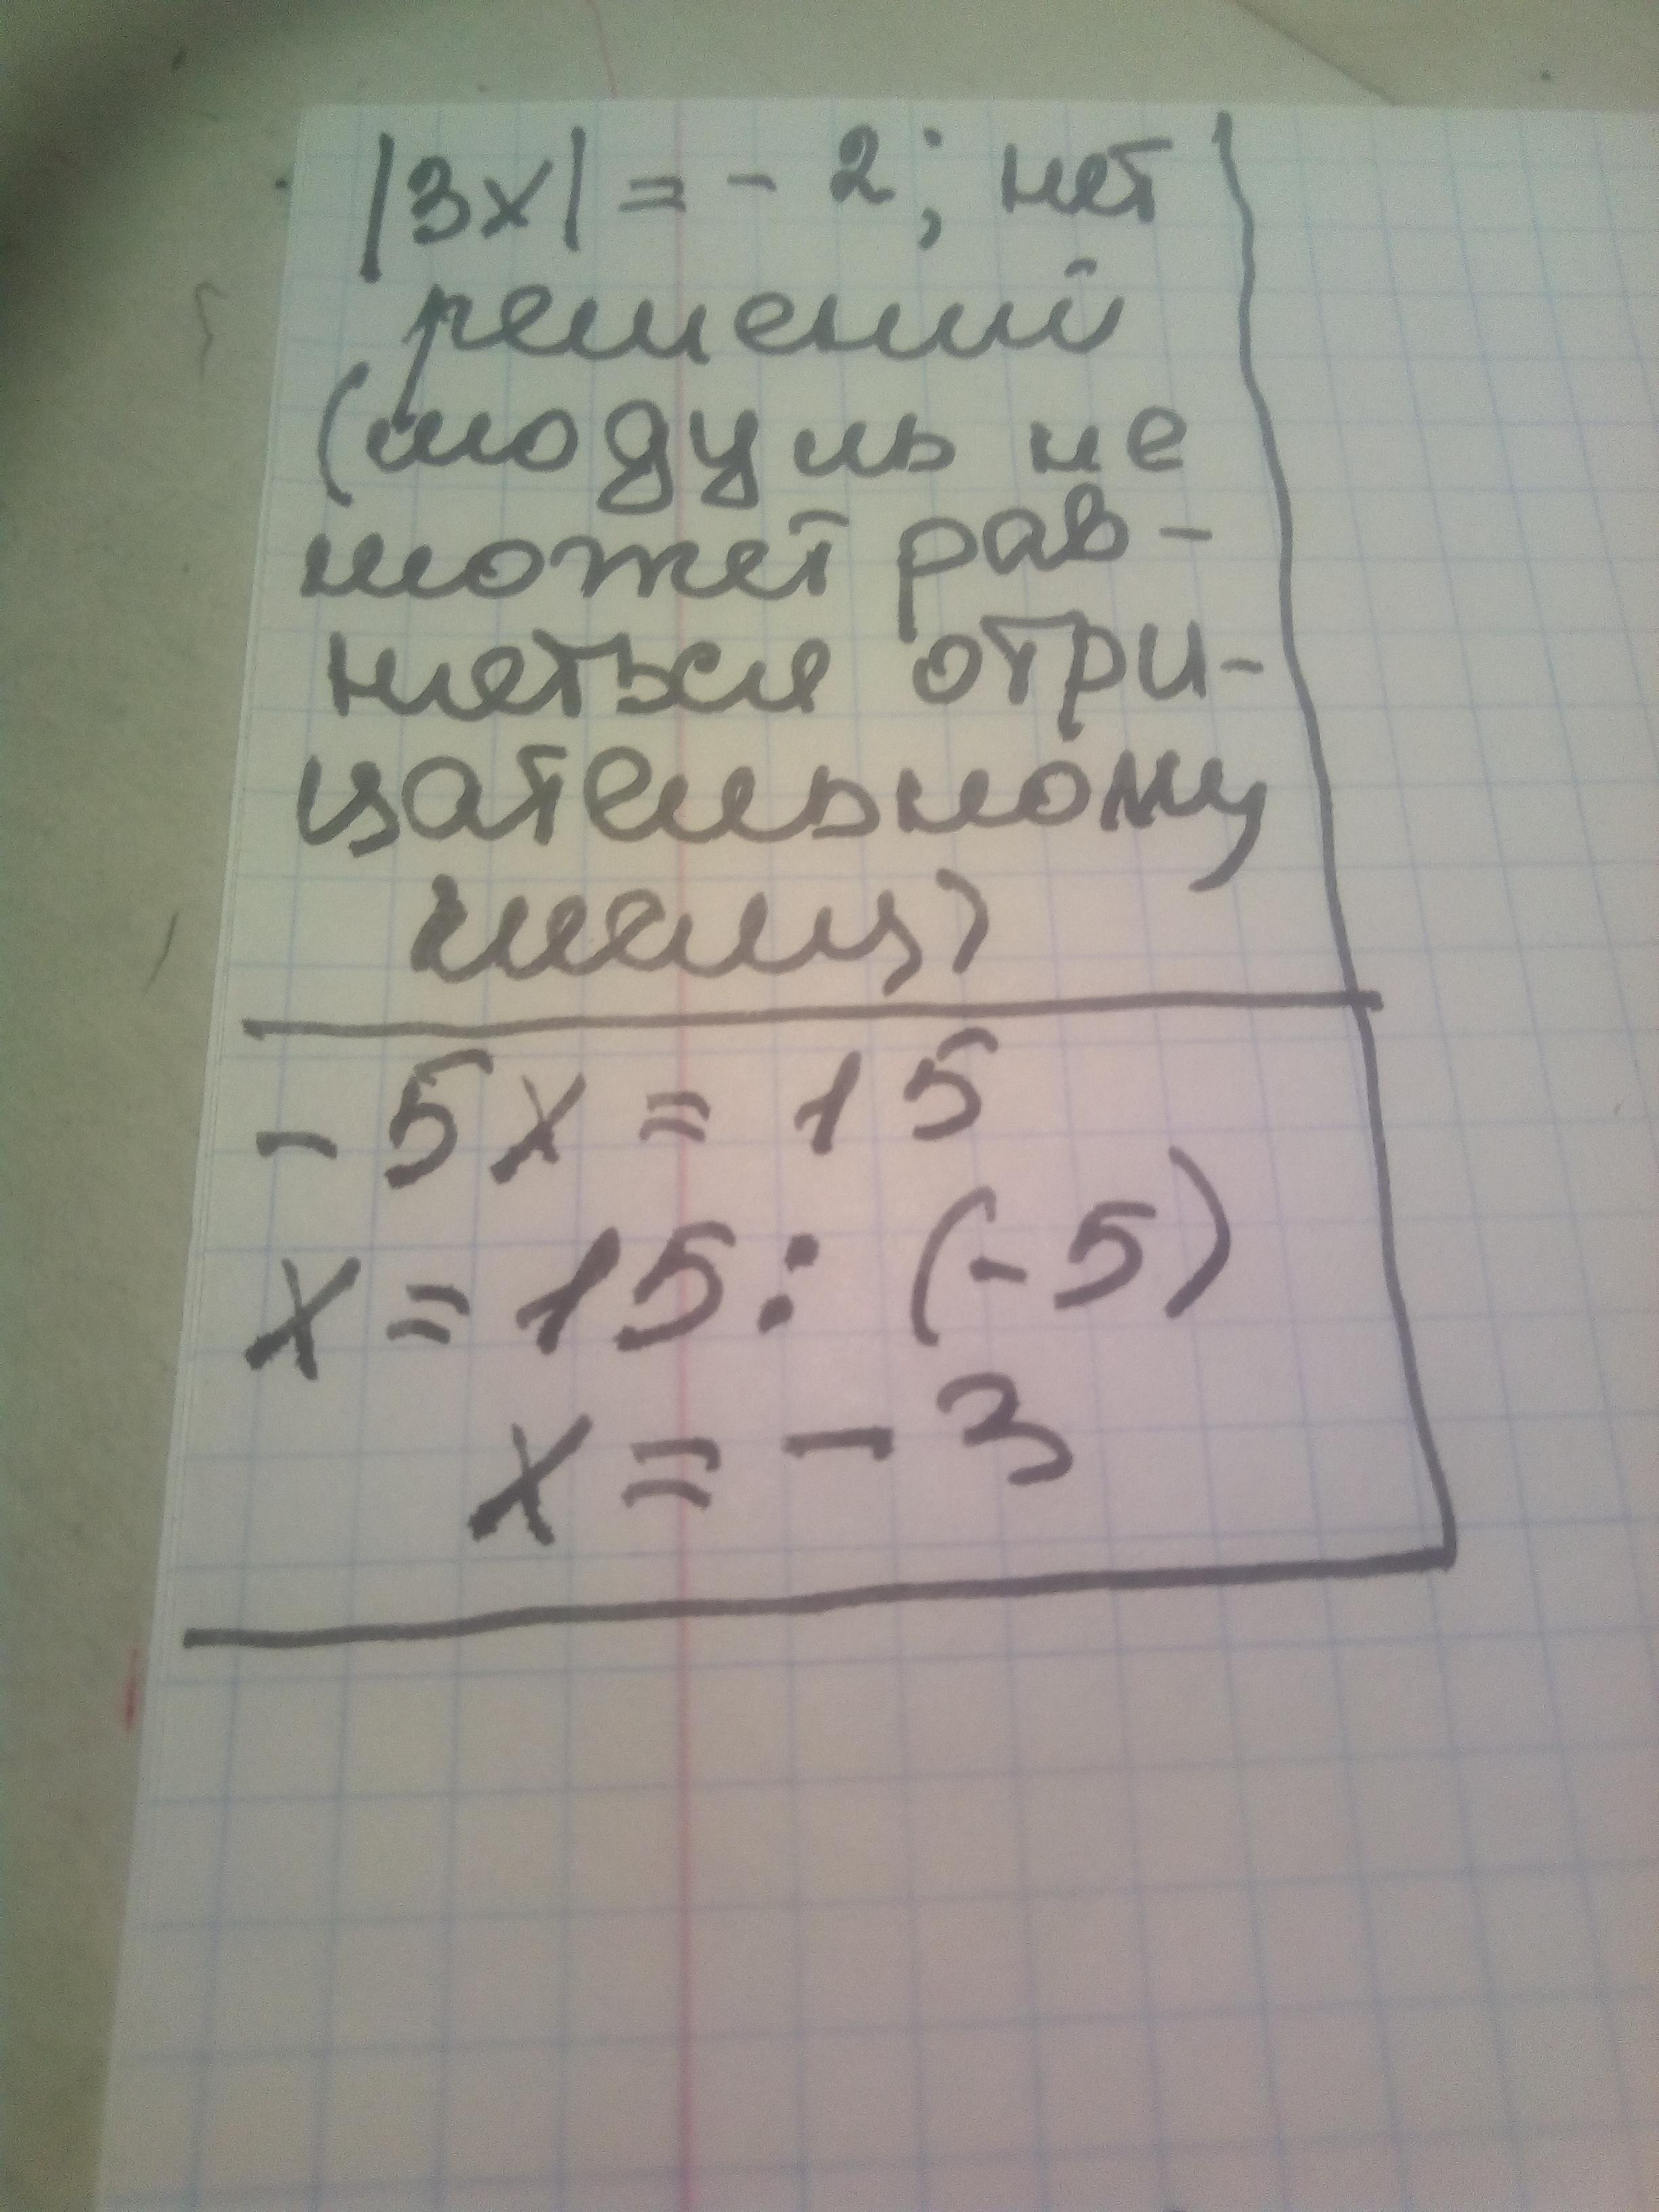 |3x| = - 2; нет
решений
(модуль не
может рав-
няться отри-
цательному
числу)
- 5x = 15
x = 15 : (-5)
x = - 3